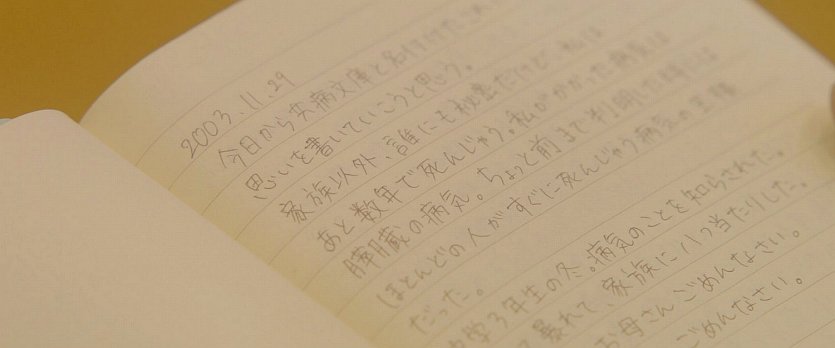 2003.11.29
今日から共病文庫と名付けたこの
思いを書いていこうと思う。
家族以外、誰にも秘密だけど、私は
あと数年で死んじゃう。私がかかった病気は
膵臓の病気。ちょっと前まで判明した時には
ほとんどの人がすぐに死んじゃう病気の王様
だった。
中学3年生の冬。病気のことを知らされた。
暴れて、家族に八つ当たりした。
お母さんごめんなさい。
ごめんなさい。